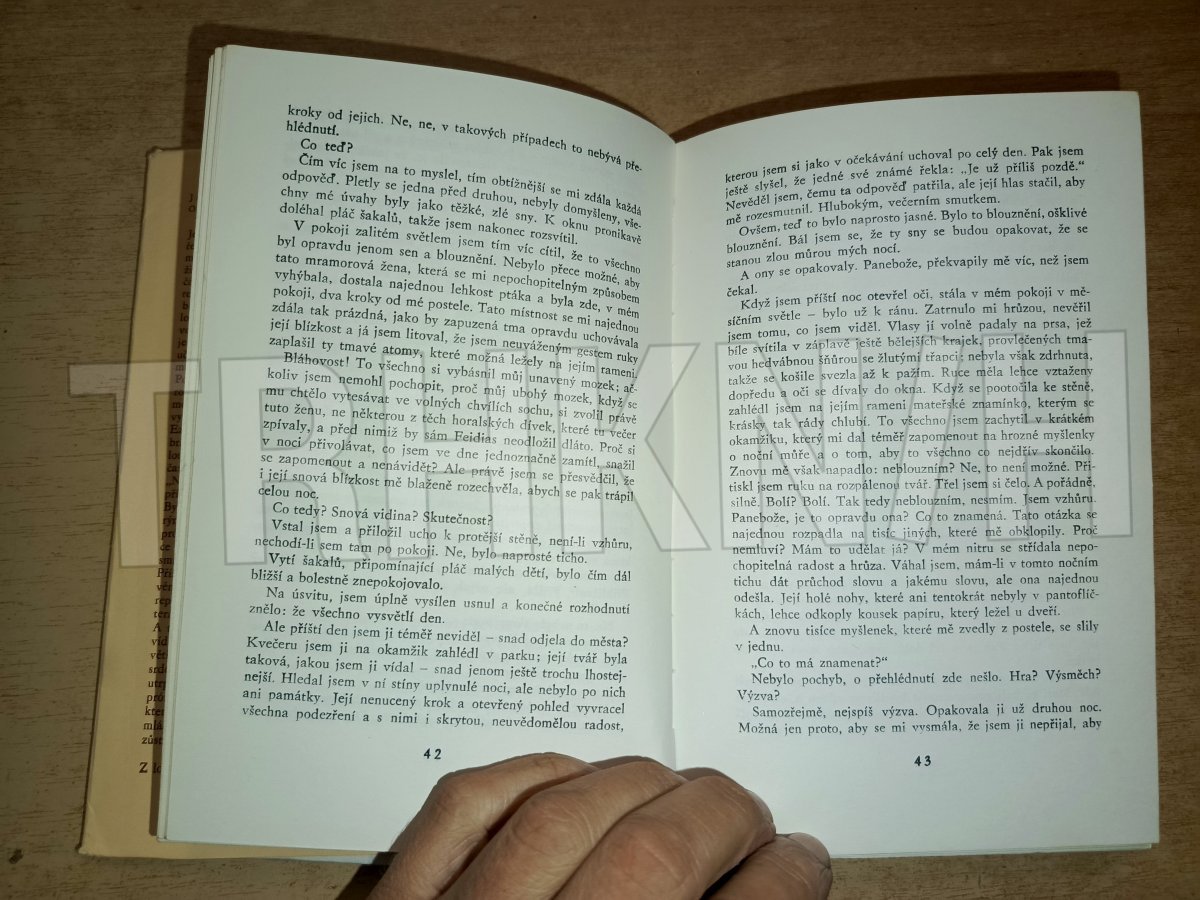 kroky od jejich. Ne, ne, v takových případech to nebývá pře-
hlédnutí.
Co teď?
Čím víc jsem na to myslel, tím obtížnější se mi zdála každá
odpověď. Pletly se jedna před druhou, nebyly domyšleny, vše-
chny mé úvahy byly jako těžké, zlé sny. K oknu pronikavě
doléhal pláč šakalů, takže jsem nakonec rozsvítil.
V pokoji zalitém světlem jsem tím víc cítil, že to všechno
byl opravdu jenom sen a blouznění. Nebylo přece možné, aby
tato mramorová žena, která se mi nepochopitelným způsobem
vyhýbala, dostala najednou lehkost ptáka a byla zde, v mém
pokoji, dva kroky od mé postele. Tato místnost se mi najednou
zdála tak prázdná, jako by zapuzená tma opravdu uchovávala
její blízkost a já jsem litoval, že jsem neuváženým gestem ruky
zaplašil ty tmavé atomy, které možná ležely na jejím rameni.
Bláhovost! To všechno si vybásnil můj unavený mozek; ač-
koliv jsem nemohl pochopit, proč můj ubohý mozek, když se
mu chtělo vytesávat ve volných chvílích sochu, si zvolil právě
tuto ženu, ne některou z těch horalských dívek, které tu večer
zpívaly, a před nimiž by sám Feidias neodložil dláto. Proč si
v noci přivolávat, co jsem ve dne jednoznačně zamítl, snažil
se zapomenout a nenávidět? Ale právě jsem se přesvědčil, že
i její snová blízkost mě blaženě rozechvěla, abych se pak trápil
celou noc.
Co tedy? Snová vidina? Skutečnost?
Vstal jsem a přiložil ucho k protější stěně, není-li vzhůru,
nechodí-li sem tam po pokoji. Ne, bylo naprosté ticho.
Vytí šakalů, připomínající pláč malých dětí, bylo čím dál
bližší a bolestně znepokojovalo.
Na úsvitu, jsem úplně vysílen usnul a konečné rozhodnutí
znělo: že všechno vysvětlí den.
Ale příští den jsem ji téměř neviděl – snad odjela do města?
Kvečeru jsem ji na okamžik zahlédl v parku; její tvář byla
taková, jakou jsem ji vídal – snad jenom ještě trochu lhostej-
nější. Hledal jsem v ní stíny uplynulé noci, ale nebylo po nich
ani památky. Její nenucený krok a otevřený pohled vyvracel
všechna podezření a s nimi i skrytou, neuvědomělou radost,
42
kterou jsem si jako v očekávání uchoval po celý den. Pak jsem
ještě slyšel, že jedné své známé řekla: „Je už příliš pozdě.“
Nevěděl jsem, čemu ta odpověď patřila, ale její hlas stačil, aby
mě rozesmutnil. Hlubokým, večerním smutkem.
Ovšem, teď to bylo naprosto jasné. Bylo to blouznění, ošklivé
blouznění. Bál jsem se, že ty sny se budou opakovat, že se
stanou zlou můrou mých nocí.
A ony se opakovaly. Panebože, překvapily mě víc, než jsem
čekal.
Když jsem příští noc otevřel oči, stála v mém pokoji v mě-
síčním světle – bylo už k ránu. Zatrnulo mi hrůzou, nevěřil
jsem tomu, co jsem viděl. Vlasy jí volně padaly na prsa, jež
bíle svítila v záplavě ještě bělejších krajek, provlečených tma-
vou hedvábnou šňůrou se žlutými třapci; nebyla však zdrhnuta,
takže se košile svezla až k pažím. Ruce měla lehce vztaženy
dopředu a oči se dívaly do okna. Když se pootočila ke stěně,
zahlédl jsem na jejím rameni mateřské znamínko, kterým se
krásky tak rády chlubí. To všechno jsem zachytil v krátkém
okamžiku, který mi dal téměř zapomenout na hrozné myšlenky
o noční můře a o tom, aby to všechno co nejdřív skončilo.
Znovu mě však napadlo: neblouzním? Ne, to není možné. Při-
tiskl jsem ruku na rozpálenou tvář. Třel jsem si čelo. A pořádně,
silně. Bolí? Bolí. Tak tedy neblouzním, nesmím. Jsem vzhůru.
Panebože, je to opravdu ona? Co to znamená. Tato otázka se
najednou rozpadla na tisíc jiných, které mě obklopily. Proč
nemluví? Mám to udělat já? V mém nitru se střídala nepo-
chopitelná radost a hrůza. Váhal jsem, mám-li v tomto nočním
tichu dát průchod slovu a jakému slovu, ale ona najednou
odešla. Její holé nohy, které ani tentokrát nebyly v pantoflíč-
kách, lehce odkoply kousek papíru, který ležel u dveří.
A znovu tisíce myšlenek, které mě zvedly z postele, se slily
v jednu.
„Co to má znamenat?“
Nebylo pochyb, o přehlédnutí zde nešlo. Hra? Výsměch?
Výzva?
Samozřejmě, nejspíš výzva. Opakovala ji už druhou noc.
Možná jen proto, aby se mi vysmála, že jsem ji nepřijal, aby
43
TRHKNIH